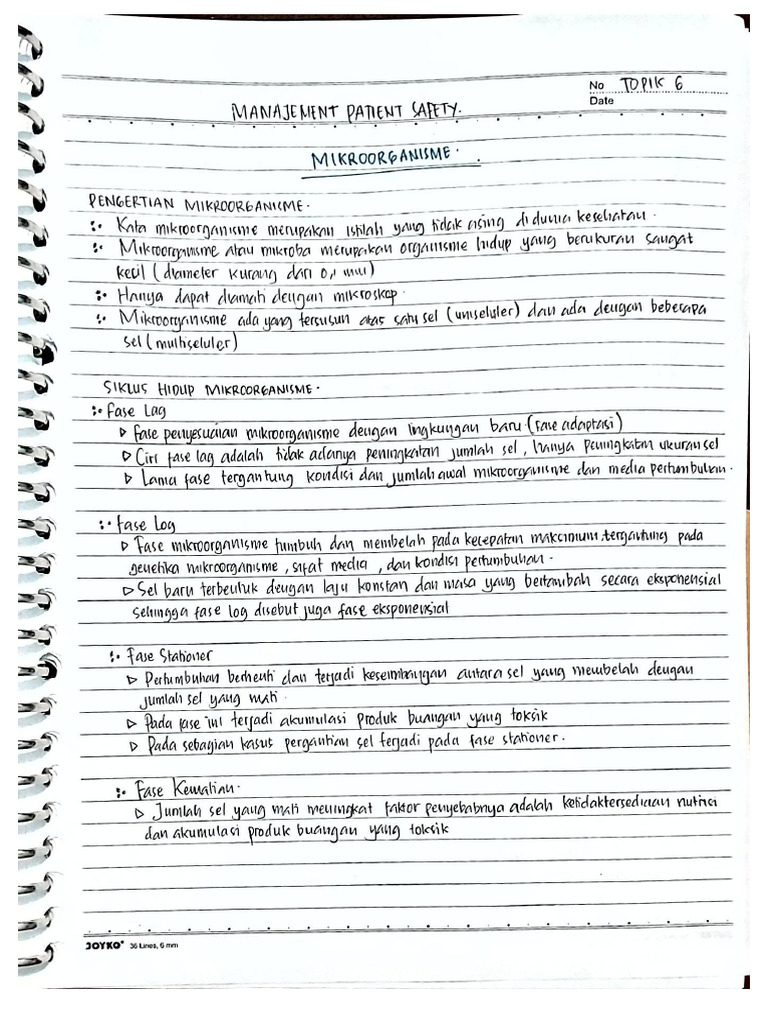 No TOPIK 6
Date
MANAJEMENT PATIENT SAFETY.
MIKROORGANISME.
PENGERTIAN MIKROORGANISME.
Kata mikroorganisme merupakan istilah yang tidak asing di dunia kesehatan.
Mikroorganisme atau mikroba merupakan organisme hidup yang berukuran sangat
kecil (diameter kurang dari 0,1 mm)
Hanya dapat diamati dengan mikroskop.
Mikroorganisme ada yang tersusun atas satu sel (uniseluler) dan ada dengan beberapa
sel (multiseluler)
SIKLUS HIDUP MIKROORGANISME.
Fase Lag
▷ Fase penyesuaian mikroorganisme dengan lingkungan baru (fase adaptasi)
▷ Ciri fase lag adalah tidak adanya peningkatan jumlah sel, hanya peningkatan ukuran sel
▷ Lama fase tergantung kondisi dan jumlah awal mikroorganisme dan media pertumbuhan.
Fase Log
▷ Fase mikroorganisme tumbuh dan membelah pada kecepatan maksimum, tergantung pada
genetika mikroorganisme, sifat media, dan kondisi pertumbuhan.
▷ Sel baru terbentuk dengan laju konstan dan masa yang bertambah secara eksponensial
sehingga fase log disebut juga fase eksponensial
Fase Stationer
▷ Pertumbuhan berhenti dan terjadi keseimbangan antara sel yang membelah dengan
jumlah sel yang mati.
▷ Pada fase ini terjadi akumulasi produk buangan yang toksik
▷ Pada sebagian kasus pergantian sel terjadi pada fase stationer.
Fase Kematian.
▷ Jumlah sel yang mati meningkat faktor penyebabnya adalah ketidaktersediaan nutrisi
dan akumulasi produk buangan yang toksik
JOYKO 36 Lines, 6 mm